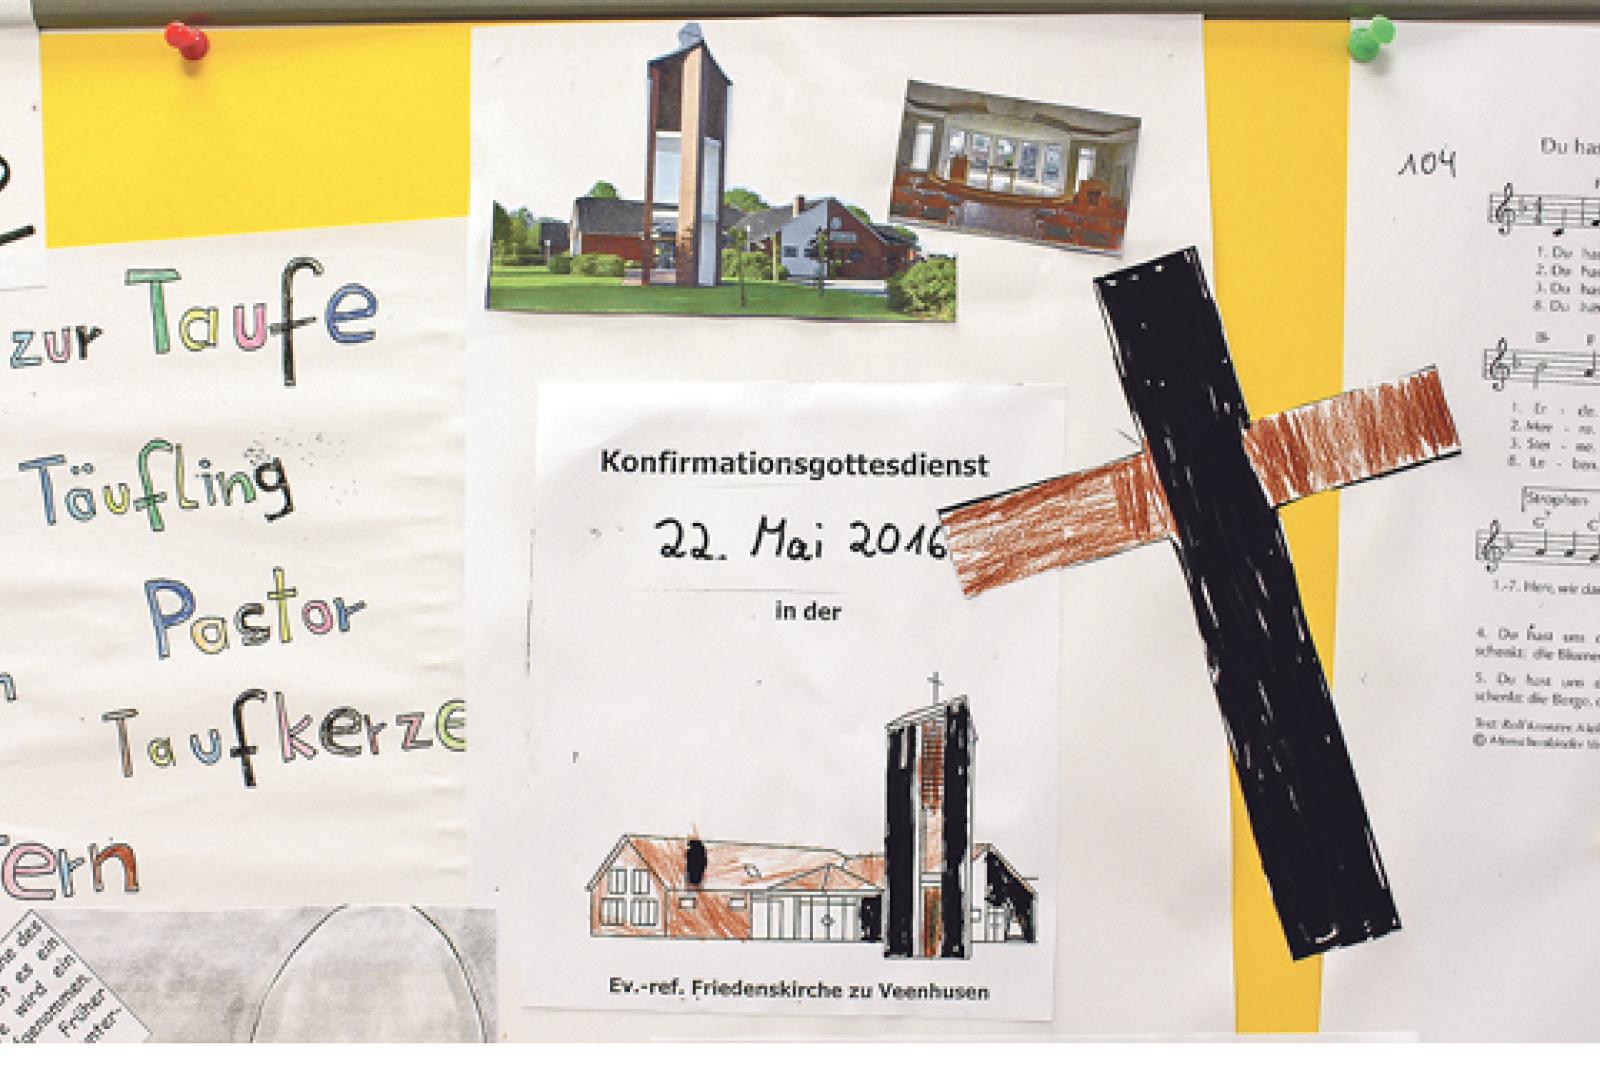 zur Taufe
Täufling
Pastor
Taufkerze
ern
des
es ein
wird ein
genommen.
Früher
unter-
Konfirmationsgottesdienst
22. Mai 2016
in der
Ev.-ref. Friedenskirche zu Veenhusen
104
Du has
1. Du has
2. Du has
3. Du has
1. Er - de.
3. Ster - ne.
8. Le - ben.
Strophen
1.-7. Herr, wir da
4. Du hast uns
schenkt: die Blumen
5. Du hast uns
schenkt: die Berge,